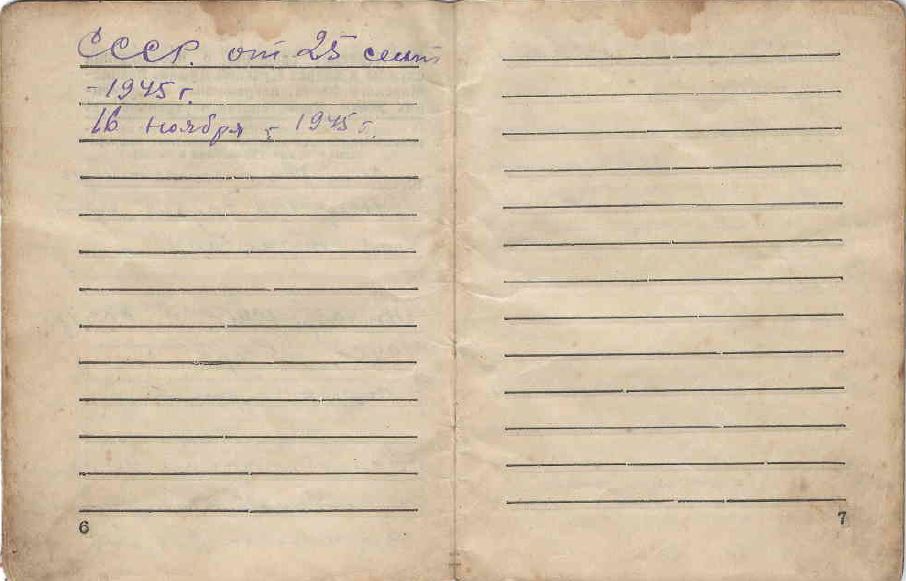 СССР. от 25 сент
- 1945 г.
16 ноября - 1945 г.
6
7